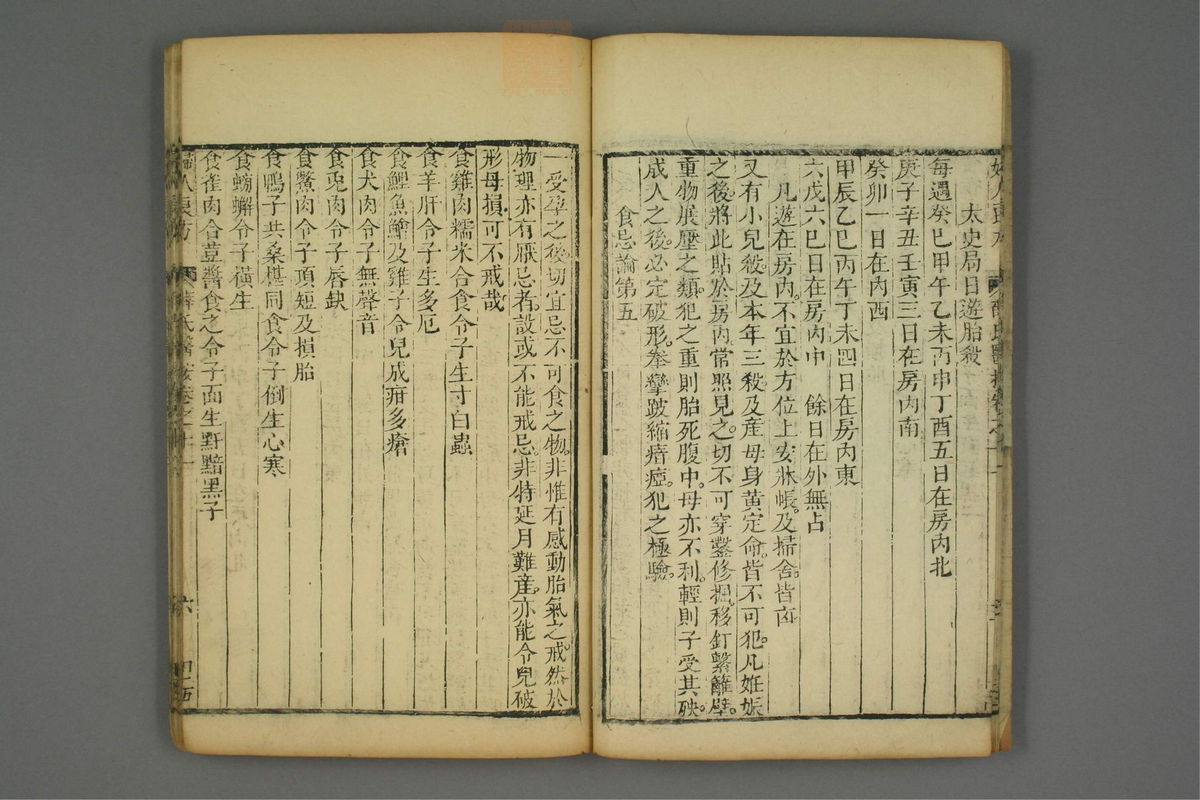 太史局日遊胎殺
每遇癸巳甲午乙未丙申丁酉五日在房內北
庚子辛丑壬寅三日在房內南
癸卯一日在內西
甲辰乙巳丙午丁未四日在房內東
六戊六巳日在房內中　餘日在外無占
凡遊在房內。不宜於方位上安牀帳。及掃舍。皆凶
又有小兒殺。及本年三殺。及産母身黄定命。皆不可犯。凡姙娠
之後。將此貼於房內。常照見之。切不可穿鑿修掘。移釘繫籬壁。
重物展壓之類。犯之重則胎死腹中。母亦不利。輕則子受其殃。
成人之後。必定破形。拳攣跛縮瘖瘂。犯之極驗。
食忌論第五
一受孕之後。切宜忌不可食之物。非惟有感動胎氣之戒。然於
物理亦有厭忌者。設或不能戒忌。非特延月難産。亦能令兒破
形母損。可不戒哉
食雞肉糯米合食令子生寸白蟲
食羊肝令子生多厄
食鯉魚鱠及雞子令兒成疳多瘡
食犬肉令子無聲音
食兎肉令子唇缺
食鱉肉令子項短及損胎
食鴨子共桑椹同食令子倒生心寒
食螃蠏令子橫生
食雀肉合荳醬食之令子面生䵟黯黑子
婦人良方　薛氏醫按卷之　六